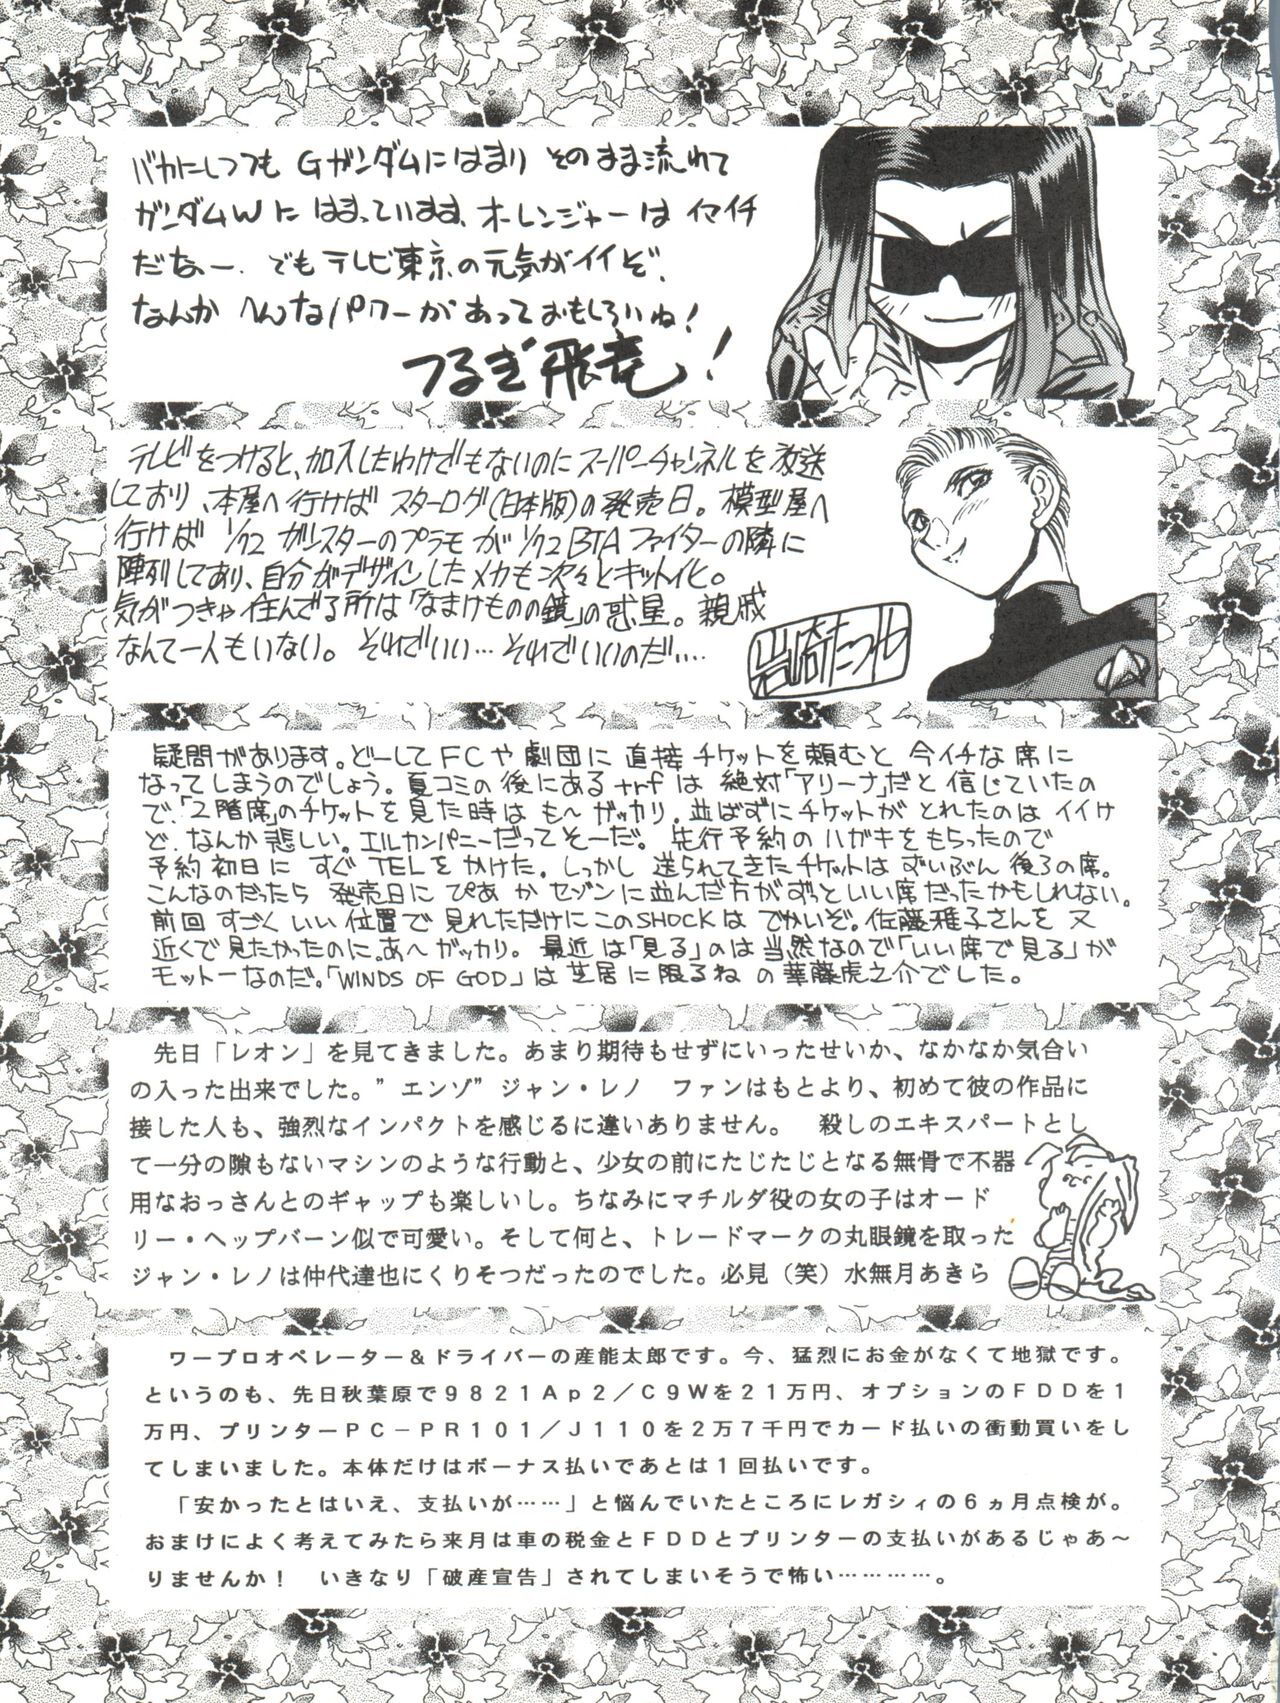 バカにしつつも Gガンダムにはまり そのまま流れて
ガンダムWに はまっています、オーレンジャーは イマイチ
だなー、でも テレビ東京の元気がイイぞ、
なんか へんなパワーがあっておもしろいね!
つるぎ飛竜!
テレビをつけると、加入したわけでもないのにスーパーチャンネルを放送
しており、本屋へ行けば スターログ(日本版)の発売日。模型屋へ
行けば 1/72 ガンスターのプラモが 1/72 BTAファイターの隣に
陣列してあり、自分がデザインしたメカも次々とキット化。
気がつきゃ住んでる所は「なまけものの鏡」の惑星。親戚
なんて一人もいない。それでいい…それでいいのだ……
岩崎たつや
疑問があります。どーしてFCや劇団に 直接チケットを頼むと 今イチな席に
なってしまうのでしょう。夏コミの後にあるtrfは 絶対「アリーナ」だと信じていたの
で、「2階席」のチケットを見た時は も〜ガッカリ。並ばずにチケットが とれたのは イイけ
ど、なんか悲しい。エルカンパニーだってそーだ。先行予約のハガキをもらったので
予約初日に すぐTELをかけた。しっかし 送られてきたチケットは ずいぶん 後ろの席。
こんなのだったら 発売日に ぴあ か セゾンに並んだ方がずっといい席だったかもしれない。
前回 すごく いい位置で 見れただけにこのSHOCKは でかいぞ。佐藤雅子さんを 又
近くで見たかったのに。あ〜ガッカリ。最近は「見る」のは当然なので「いい席で見る」が
モットーなのだ。「WINDS OF GOD」は芝居に限るね の華藤虎之介でした。
先日「レオン」を見てきました。あまり期待もせずにいったせいか、なかなか気合い
の入った出来でした。”エンゾ”ジャン・レノ ファンはもとより、初めて彼の作品に
接した人も、強烈なインパクトを感じるに違いありません。 殺しのエキスパートとし
て一分の隙もないマシンのような行動と、少女の前にたじたじとなる無骨で不器
用なおっさんとのギャップも楽しいし。ちなみにマチルダ役の女の子はオード
リー・ヘップバーン似で可愛い。そして何と、トレードマークの丸眼鏡を取った
ジャン・レノは仲代達也にくりそつだったのでした。必見(笑)水無月あきら
ワープロオペレーター&ドライバーの産能太郎です。今、猛烈にお金がなくて地獄です。
というのも、先日秋葉原で9821Ap2/C9Wを21万円、オプションのFDDを1
万円、プリンターPC-PR101/J110を2万7千円でカード払いの衝動買いをし
てしまいました。本体だけはボーナス払いであとは1回払いです。
「安かったとはいえ、支払いが……」と悩んでいたところにレガシィの6ヵ月点検が。
おまけによく考えてみたら来月は車の税金とFDDとプリンターの支払いがあるじゃあ〜
りませんか! いきなり「破産宣告」されてしまいそうで怖い…………。